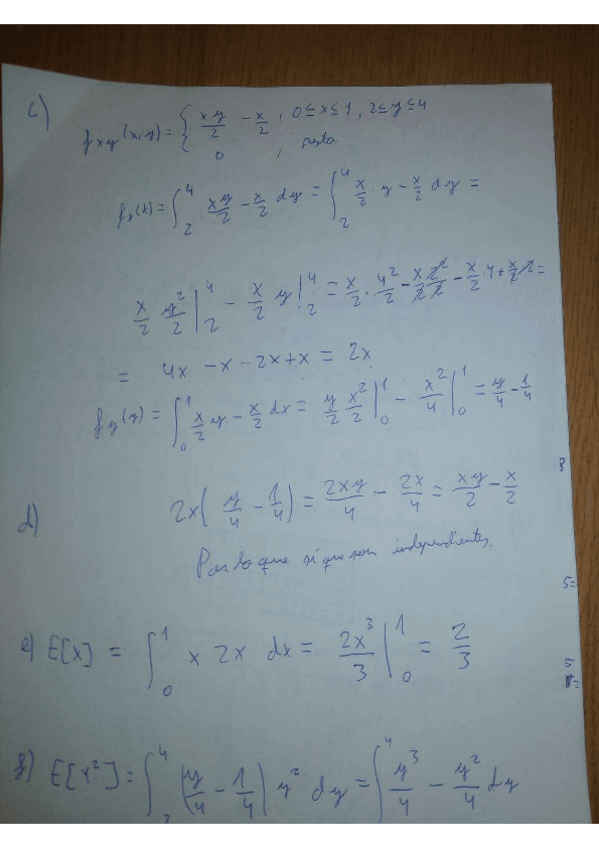 c) fxy(x,y) = { xy/2 - x/2 , 0≤x≤1, 2≤y≤4
0 , resto
fx(x) = ∫₂⁴ xy/2 - x/2 dy = ∫₂⁴ x/2 · y - x/2 dy =
x/2 y²/2 |₂⁴ - x/2 y |₂⁴ = x/2 · 4²/2 - x/2 2²/2 - x/2 · 4 + x/2 2 =
= 4x - x - 2x + x = 2x
fy(y) = ∫₀¹ x/2 y - x/2 dx = y/2 x²/2 |₀¹ - x²/4 |₀¹ = y/4 - 1/4
d) 2x( y/4 - 1/4 ) = 2xy/4 - 2x/4 = xy/2 - x/2
Por lo que si que son independientes.
e) E[X] = ∫₀¹ x · 2x dx = 2x³/3 |₀¹ = 2/3
f) E[Y²] = ∫₂⁴ (y/4 - 1/4) y² dy = ∫⁴ y³/4 - y²/4 dy